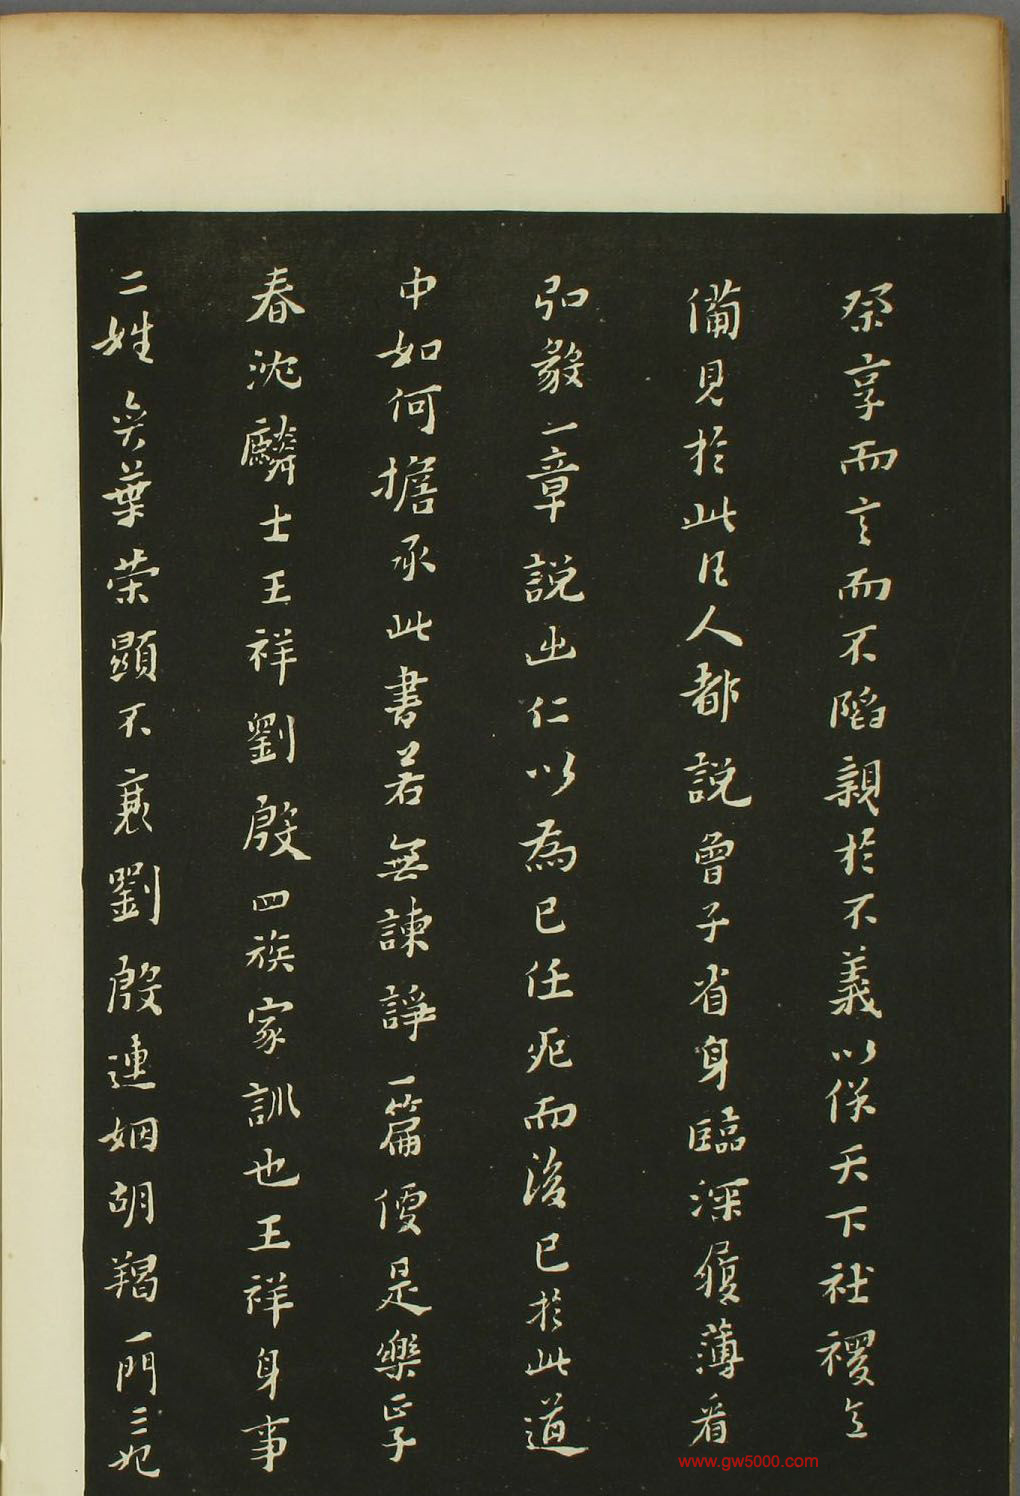 祭享而言而不陷親於不義以保天下社稷之
備見於此凡人都說曾子省身臨深履薄看
弘毅一章說出仁以為己任死而後已於此道
中如何擔承此書若無諫諍一篇便是樂正子
春沈麟士王祥劉殷四族家訓也王祥身事
二姓奕葉榮顯不衰劉殷連姻胡羯一門三妃
www.gw5000.com